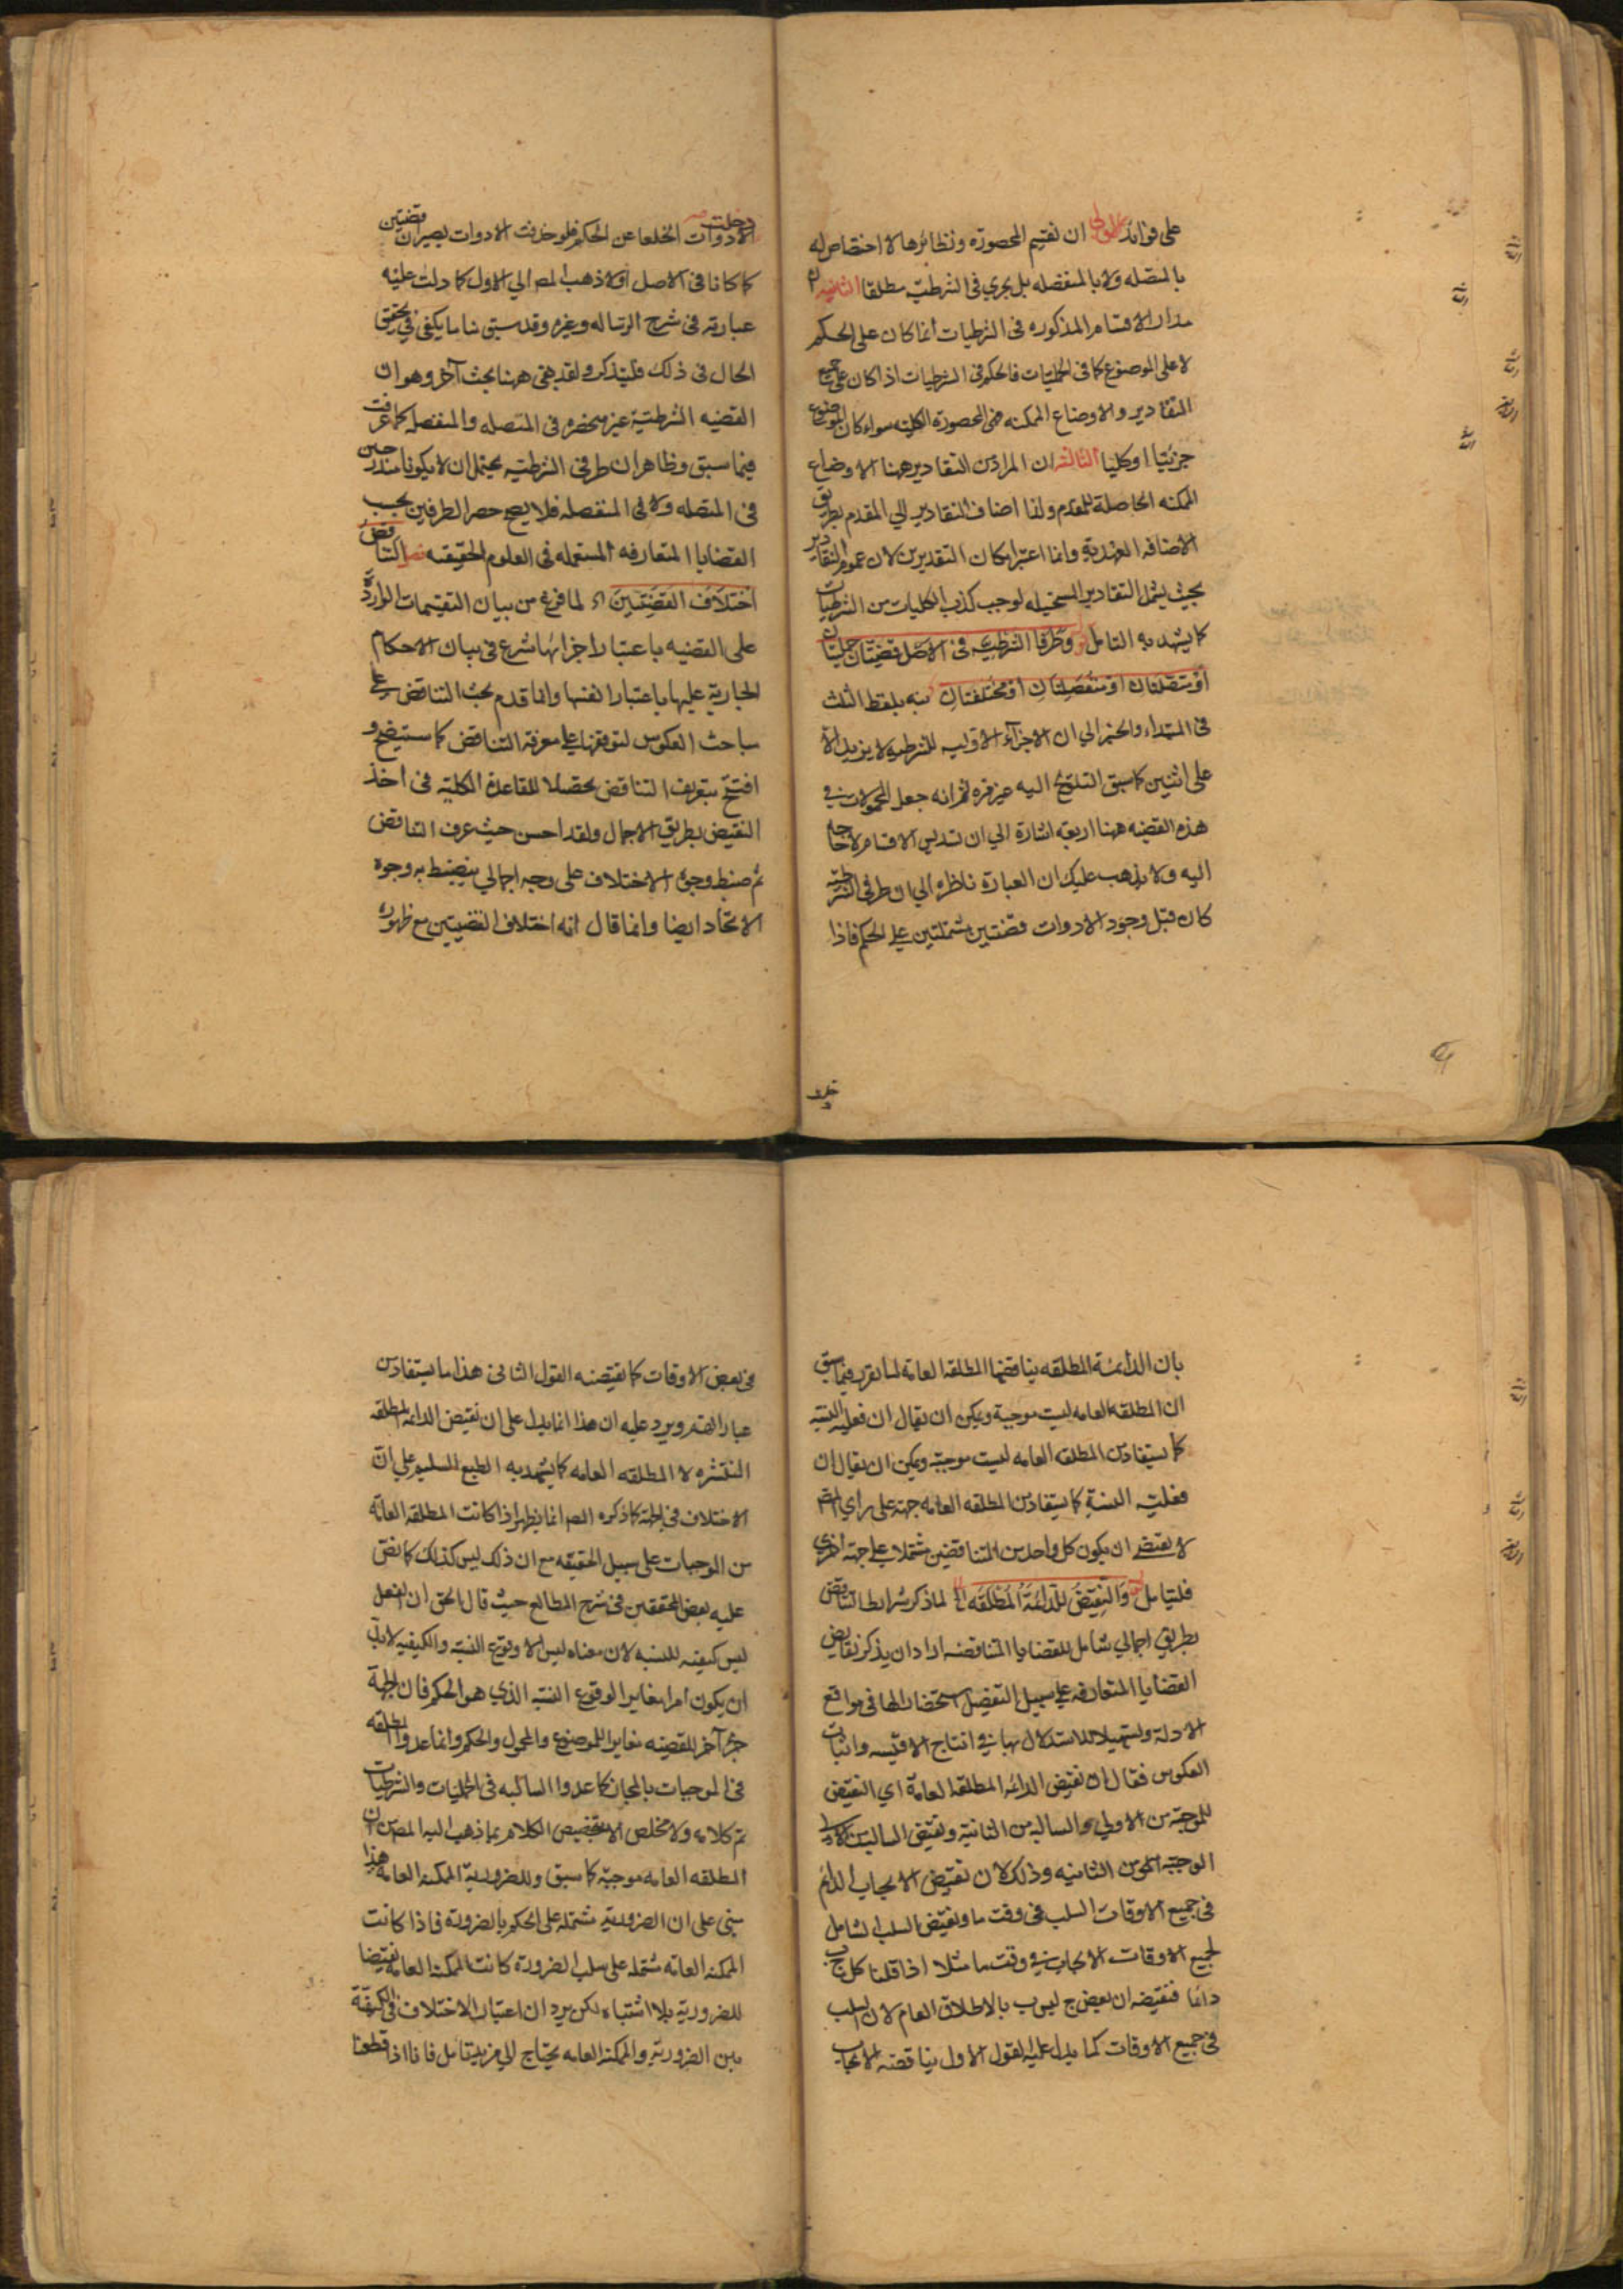 على فوائد الاولى ان تقسيم المحصورة ونظائرها لا اختصاص له
بالمتصله ولا بالمنفصله بل يجري في الشرطيت مطلقا الثانيه ان
مدار الاقسام المذكوره في الشرطيات انما كان على الحكم
لا على الموضوع كما في الحمليات فالحكم في الشرطيات اذا كان على جميع
التقادير والاوضاع الممكنه فهي المحصورة الكليه سواء كان الموضوع
جزئيا او كليا الثالثه ان المراد من التقادير ههنا الاوضاع
الممكنه الحاصلة للمقدم ولذا اضاف التقادير الي المقدم بطريق
الاضافه العهدية وانما اعتبر امكان التقديرين لان عموم التقادير
بحيث يشمل التقادير المستحيله لوجب كذب الكليات من الشرطيات
كما يشهد به التامل وطرفا الشرطيه في الاصل قضيتان حمليتان
او متصلتان او منفصلتان او مختلفتان نبه بلفظ الثلث
في المبتداء والخبر الي ان الاجزاء الاوليه للشرطيه لا يزيد الا
على اثنين كما سبق التلويح اليه غير مره ثم انه جعل المحمولات في
هذه القضيه ههنا اربعة اشارة الي ان تسديس الاقسام لا حاجة
اليه ولا يذهب عليك ان العبارة ناظره الي ان طرفي الشرطيه
كان قبل وجود الادوات قضيتين مشتملتين على الحكم فاذا
دخلت
الادوات انخلعا عن الحكم فلو حذفت الادوات يصيران قضيتين
كما كانا في الاصل اولا ذهب المص الي الاول كما دلت عليه
عبارته في شرح الرساله وغيره وقد سبق منا ما يكفي في تحقق
الحال في ذلك فليتذكر ولقد بقي ههنا بحث آخر وهو ان
القضيه الشرطية غير منحصره في المتصله والمنفصله كما عرفت
فيما سبق وظاهر ان طرفي الشرطيه يحتمل ان لا يكونا مندرجين
في المتصله ولا في المنفصله فلا يصح حصر الطرفين بحسب
القضايا المتعارفه المستعمله في العلوم الحقيقه فصل التناقض
اختلاف القضيتين اه لما فرغ من بيان التقسيمات الواردة
على القضيه باعتبار اجزائها شرع في بيان الاحكام
الجارية عليها باعتبار انفسها وانما قدم بحث التناقض على
مباحث العكوس لتوقفها على معرفة التناقض كما ستتضح و
افتتح بتعريف التناقض تحصلا للقاعدة الكلية في اخذ
النقيض بطريق الاجمال ولقد احسن حيث عرف التناقض
ثم ضبط وجوه الاختلاف على وجه اجمالي ينضبط به وجوه
الاتحاد ايضا وانما قال انه اختلاف القضيتين مع ظهور
بان الدائمة المطلقه يناقضها المطلقه العامه لما تقرر فيما سبق
ان المطلقه العامه ليست موجبة ويمكن ان يقال ان فعليه النسبه
كما يستفاد من المطلقه العامه ليست موجبة ويمكن ان يقال ان
فعليت النسبة كما يستفاد من المطلقه العامه جهة على راي المص
لا يقتضي ان يكون كل واحد من المتناقضين مشتملا على جهة اخري
فليتامل والنقيض للدائمة المطلقه اه لما ذكر شرائط التناقض
بطريق اجمالي شامل للقضايا المتناقضه اراد ان يذكر نقايض
القضايا المتعارفه على سبيل التفصيل استحضارا لها في مواقع
الادلة وتسهيلا للاستدلال بها في انتاج الاقيسه واثبات
العكوس فقال ان نقيض الدائمه المطلقه العامة اي النقيض
للموجبة من الاولي والسالبه من الثانية ونقيض السالبة من الاولى
الموجبة من الثانيه وذلك لان نقيض الايجاب الدائم
في جميع الاوقات السلب في وقت ما ونقيض السلب الشامل
لجميع الاوقات الايجاب في وقت ما مثلا اذا قلنا كل ج ب
دائما فنقيضه ان بعض ج ليس ب بالاطلاق العام لان السلب
في جميع الاوقات كما يدل عليه القول الاول يناقضه الايجاب
في بعض الاوقات كما يقتضيه القول الثاني هذا ما يستفاد من
عبارة القوم ويرد عليه ان هذا انما يدل على ان نقيض الدائمه المطلقه
المنتشره لا المطلقه العامه كما يشهد به الطبع السليم على ان
الاختلاف في الجهة كما ذكره المص انما يظهر اذا كانت المطلقه العامة
من الموجهات على سبيل الحقيقه مع ان ذلك ليس كذلك كما نص
عليه بعض المحققين في شرح المطالع حيث قال الحق ان الفعل
ليس كيفيه للنسبه لان معناه ليس الا وقوع النسبه والكيفيه لابد
ان يكون امرا مغاير الوقوع النسبه الذي هو الحكم فان الجهة
جزء آخر للقضيه مغاير للموضوع والمحمول والحكم وانما عدوا المطلقه
في الموجهات بالمجاز كما عدوا السالبه في الحمليات والشرطيات
تم كلامه ولا مخلص الا بتخصيص الكلام بما ذهب اليه المص من ان
المطلقه العامه موجبة كما سبق وللضرورية الممكنه العامه هذا
مبني على ان الضرورية مشتمله على الحكم بالضرورة فاذا كانت
الممكنه العامه مشتمله على سلب الضرورة كانت الممكنه العامه نقيضا
للضرورية بلا اشتباه لكن يرد ان اعتبار الاختلاف في الكيفية
بين الضرورية والممكنه العامه يحتاج الي مزيد تامل فانا اذا قطعنا